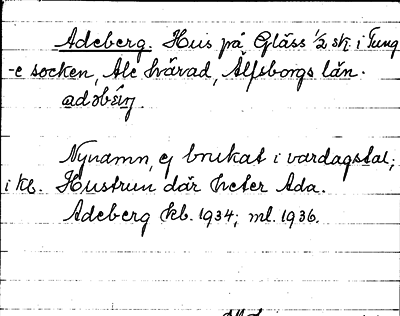 Adeberg. Hus på Gläss 1/2 sk. i Tung
-e socken, Ale härad, Älfsborgs län.
Nynamn, ej brukat i vardagstal;
i kb. Hustrun där heter Ada.
Adeberg kb. 1934; ml. 1936.